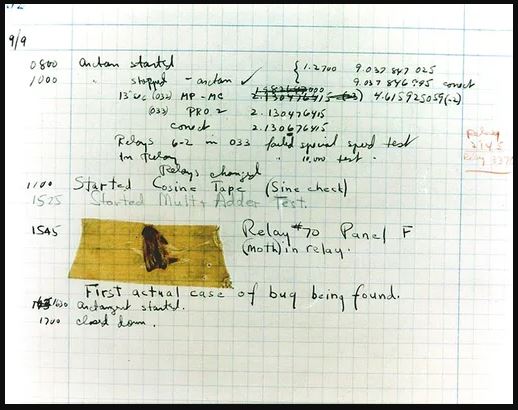 9/9
0800 antan started
1000 " stopped - antan ✓ { 1.2700 9.037 847 025
9.037 846 995 correct
13"uc (032) MP-MC 2.130476415 (-3) 4.615925059(-2)
(033) PRO 2 2.130476415
correct 2.130676415
Relays 6-2 in 033 failed special speed test
In Relay " 10,000 test "
Relays changed
Relay
2145
Relay 3370
1100 Started Cosine Tape (Sine check)
1525 Started Mult + Adder Test.
1545 Relay #70 Panel F
(moth) in relay.
First actual case of bug being found.
1630 antangent started.
1700 closed down.